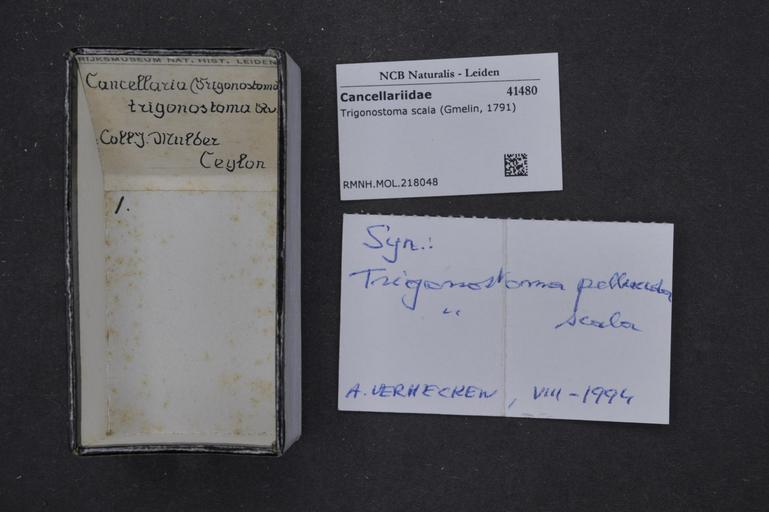 RIJKSMUSEUM NAT. HIST. LEIDEN
Cancellaria (Trigonostoma
trigonostoma
Coll J. Mulder
Ceylon
1.
NCB Naturalis - Leiden
Cancellariidae 41480
Trigonostoma scala (Gmelin, 1791)
RMNH.MOL.218048
Syn.:
Trigonostoma pellucida
" scala
A. VERHECKEN, VIII-1994